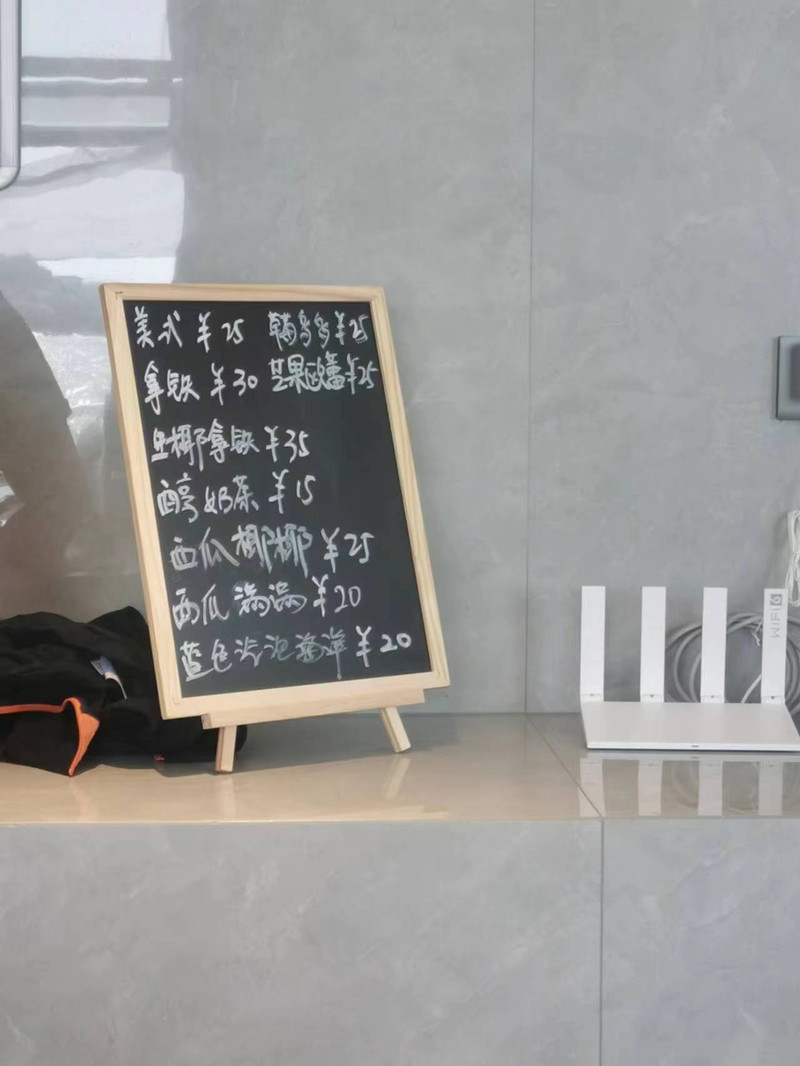 美式 ¥25
拿铁 ¥30
生椰拿铁 ¥35
醇奶茶 ¥15
西瓜椰椰 ¥25
西瓜满满 ¥20
蓝色汽泡海洋 ¥20
多多¥25
芒果¥25
WiFi 6